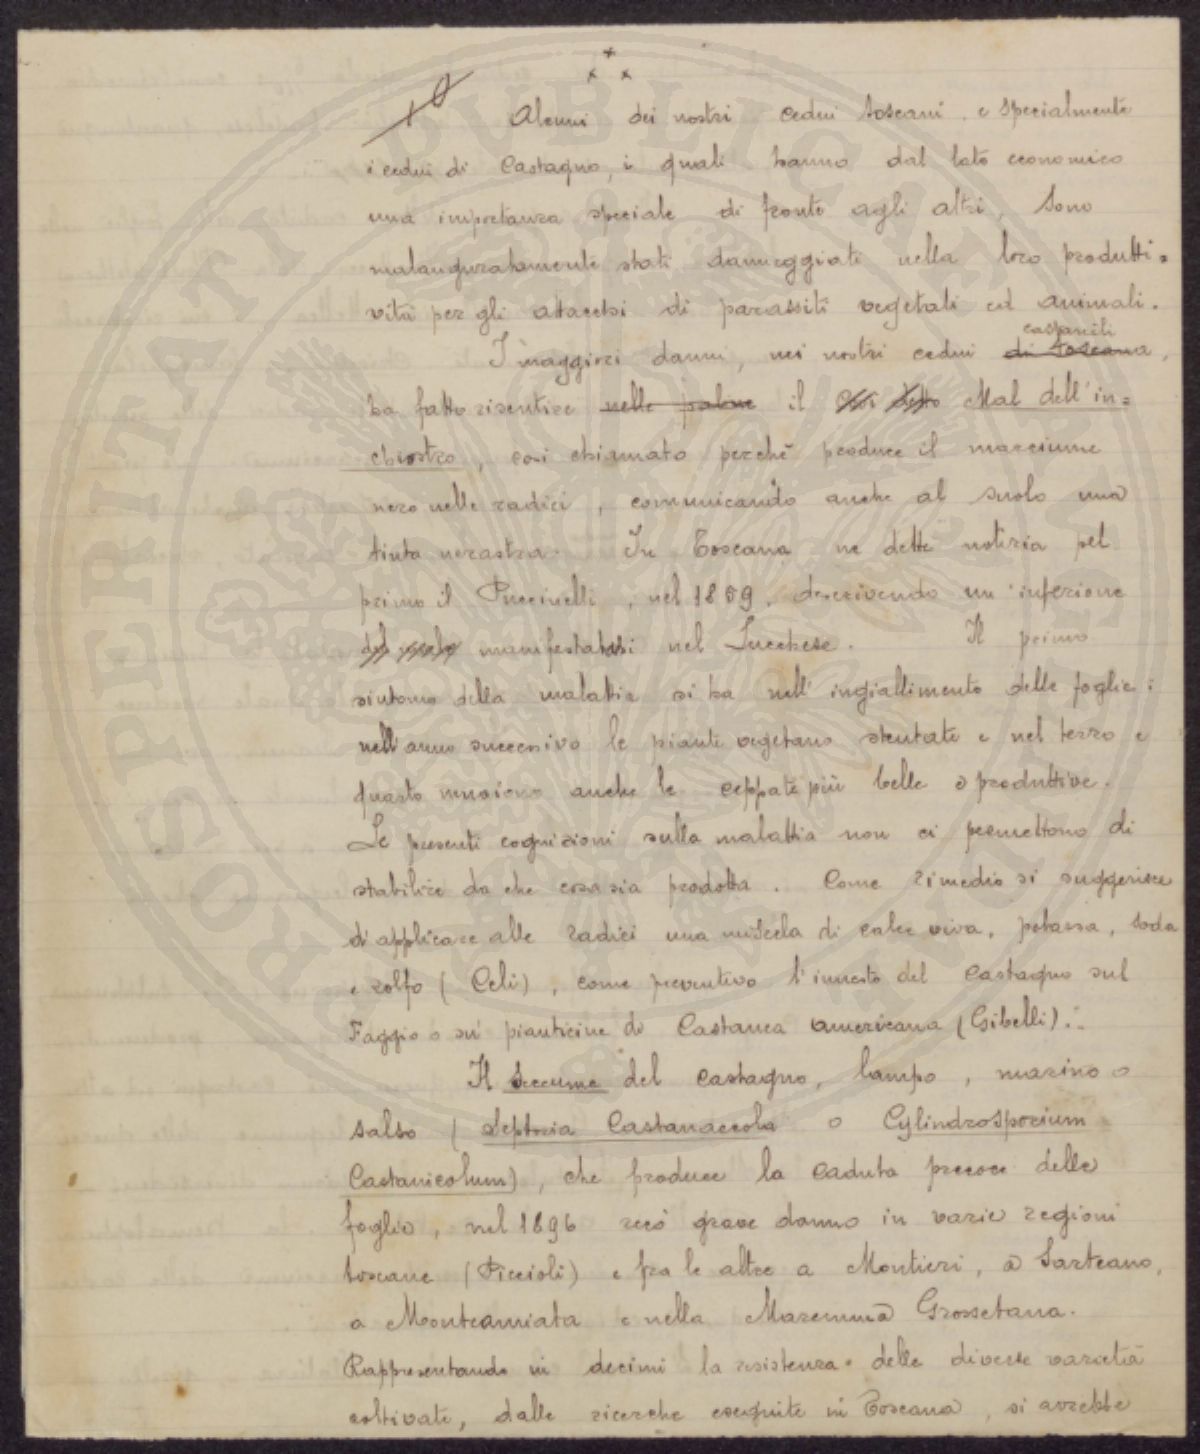 Alcuni dei nostri cedui toscani e specialmente
i cedui di Castagno, i quali hanno dal lato economico
una importanza speciale di fronte agli altri, sono
malauguratamente stati danneggiati nella loro produtti=
vità per gli attacchi di parassiti vegetali ed animali.
castanili
I maggiori danni, nei nostri cedui di Toscana,
ha fatto risentire nelle il così detto Mal dell'in=
chiostro, così chiamato perchè produce il marciume
nero nelle radici, comunicando anche al suolo una
tinta nerastra. In Toscana ne dette notizia pel
primo il Puccinelli, nel 1859, descrivendo un'infezione
manifestatasi nel Lucchese. Il primo
sintomo della malattia si ha nell'ingiallimento delle foglie;
nell'anno successivo le piante vegetano stentate e nel terzo e
quarto muoiono anche le ceppate più belle e produttive.
Le presenti cognizioni sulla malattia non ci permettono di
stabilire da che cosa sia prodotta. Come rimedio si suggerisce
di applicare alle radici una miscela di calce viva, potassa, soda
e zolfo (Celi), come preventivo l'innesto del Castagno sul
Faggio o su piantine di Castanea americana (Gibelli).
Il Seccume del castagno, lampo, marino o
salso (Septoria Castanaecola o Cylindrosporium
Castanicolum), che produce la caduta precoce delle
foglie, nel 1896 recò grave danno in varie regioni
toscane (Piccioli) e fra le altre a Montieri, a Sarteano,
a Monteamiata e nella Maremma Grossetana.
Rappresentando in decimi la resistenza delle diverse varietà
coltivate, dalle ricerche eseguite in Toscana, si avrebbe
PROSPERITATI PUBLICAE